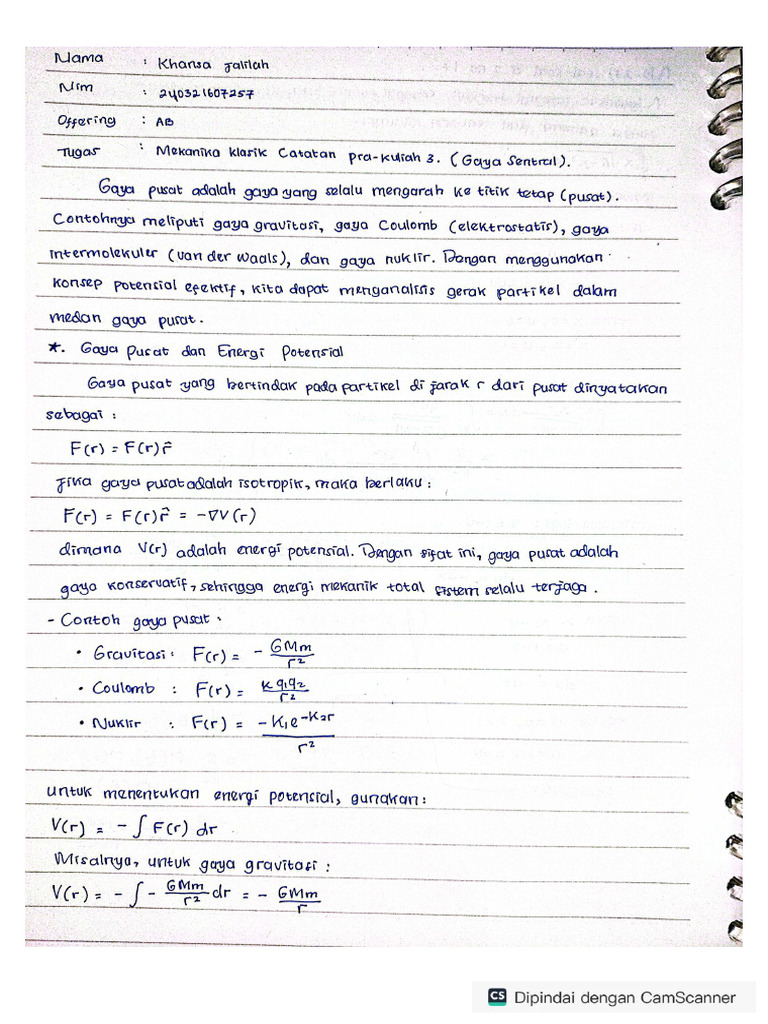 Nama : Khansa Jalilah
Nim : 240321607257
Offering : AB
Tugas : Mekanika klasik Catatan pra-kuliah 3. (Gaya Sentral).
Gaya pusat adalah gaya yang selalu mengarah ke titik tetap (pusat).
Contohnya meliputi gaya gravitasi, gaya Coulomb (elektrostatis), gaya
intermolekuler (van der Waals), dan gaya nuklir. Dengan menggunakan
konsep potensial efektif, kita dapat menganalisis gerak partikel dalam
medan gaya pusat.
*. Gaya Pusat dan Energi Potensial
Gaya pusat yang bertindak pada partikel di jarak r dari pusat dinyatakan
sebagai :
F(r) = F(r) r̂
Jika gaya pusat adalah isotropik, maka berlaku :
F(r) = F(r) r̂ = -∇V(r)
dimana V(r) adalah energi potensial. Dengan sifat ini, gaya pusat adalah
gaya konservatif, sehingga energi mekanik total sistem selalu terjaga.
- Contoh gaya pusat :
• Gravitasi : F(r) = - GMm / r²
• Coulomb : F(r) = k q₁q₂ / r²
• Nuklir : F(r) = -K₁e^-K₂r / r²
untuk menentukan energi potensial, gunakan :
V(r) = - ∫ F(r) dr
Misalnya, untuk gaya gravitasi :
V(r) = - ∫ - GMm / r² dr = - GMm / r
CS Dipindai dengan CamScanner